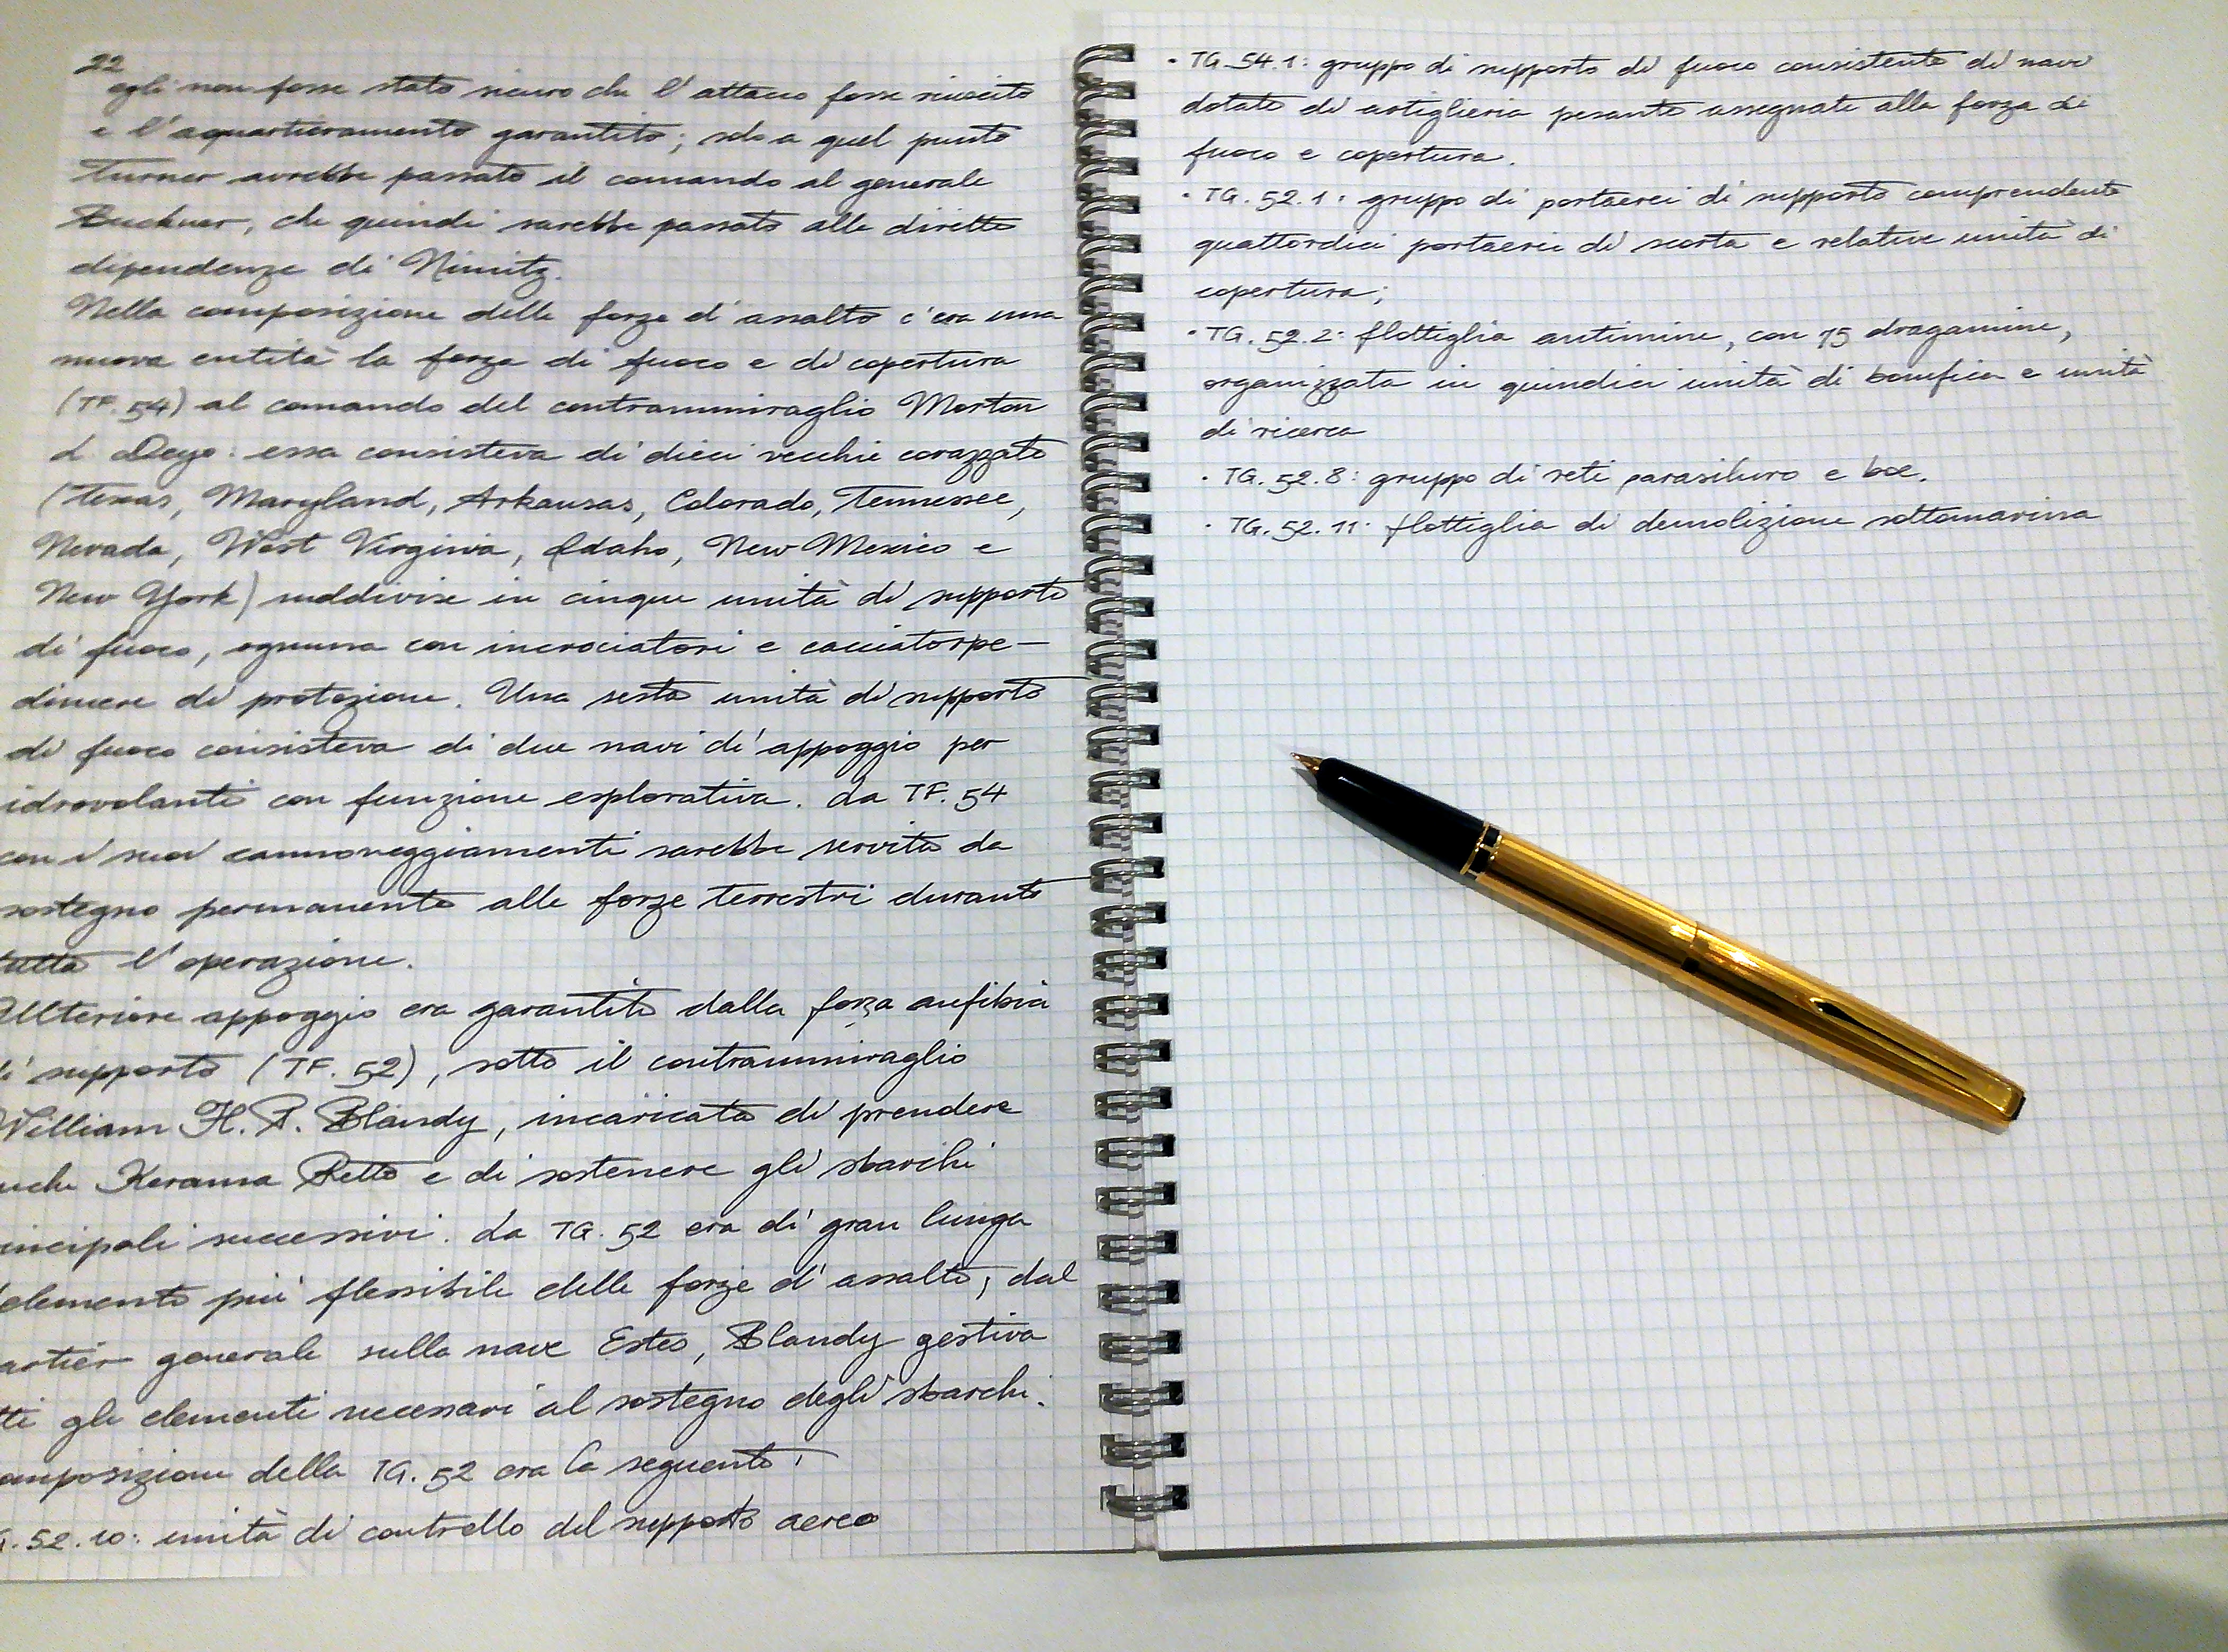 22
egli non fosse stato sicuro che l'attacco fosse riuscito
e l'aquartieramento garantito; solo a quel punto
Turner avrebbe passato il comando al generale
Buckner, che quindi sarebbe passato alle dirette
dipendenze di Nimitz.
Nella composizione delle forze d'assalto c'era una
nuova entità la forza di fuoco e di copertura
(TF. 54) al comando del contrammiraglio Morton
L. Deyo: essa consisteva di dieci vecchie corazzate
(Texas, Maryland, Arkansas, Colorado, Tennessee,
Nevada, West Virginia, Idaho, New Mexico e
New York) suddivise in cinque unità di supporto
di fuoco, ognuna con incrociatori e cacciatorpe-
diniere di protezione. Una sesta unità di supporto
di fuoco consisteva di due navi d'appoggio per
idrovolanti con funzione esplorativa. La TF. 54
con i suoi cannoneggiamenti sarebbe servita da
sostegno permanente alle forze terrestri durante
tutta l'operazione.
Ulteriore appoggio era garantito dalla forza anfibia
di supporto (TF. 52), sotto il contrammiraglio
William H. P. Blandy, incaricata di prendere
nche Kerama Retto e di sostenere gli sbarchi
incipali successivi. La TG. 52 era di gran lunga
l'elemento più flessibile delle forze d'assalto; dal
artier generale sulla nave Estes, Blandy gestiva
tti gli elementi necessari al sostegno degli sbarchi.
omposizione della TG. 52 era la seguente:
G. 52.10: unità di controllo del supporto aereo
• TG. 54.1: gruppo di supporto di fuoco consistente di navi
dotate di artiglieria pesante assegnate alla forza di
fuoco e copertura.
• TG. 52.1: gruppo di portaerei di supporto comprendente
quattordici portaerei di scorta e relative unità di
copertura;
• TG. 52.2: flottiglia antimine, con 75 dragamine,
organizzata in quindici unità di bonifica e unità
di ricerca
• TG. 52.8: gruppo di reti parasiluro e boe.
• TG. 52.11: flottiglia di demolizione sottomarina